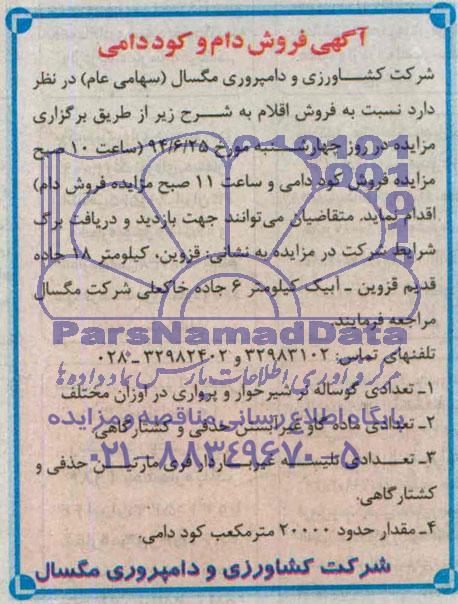 آگهی فروش دام و کود دامی
شرکت کشاورزی و دامپروری مگسال (سهامی عام) در نظر
دارد نسبت به فروش اقلام به شرح زیر از طریق برگزاری
مزایده در روز چهارشنبه مورخ ۹۴/۶/۲۵ (ساعت ۱۰ صبح
مزایده فروش کود دامی و ساعت ۱۱ صبح مزایده فروش دام)
اقدام نماید. متقاضیان می‌توانند جهت بازدید و دریافت برگ
شرایط شرکت در مزایده به نشانی: قزوین، کیلومتر ۱۸ جاده
قدیم قزوین ـ آبیک کیلومتر ۶ جاده خاکعلی شرکت مگسال
مراجعه فرمایند.
ParsNamadData
تلفنهای تماس: ۳۲۹۸۳۱۰۲ و ۳۲۹۸۲۴۰۲ ـ ۰۲۸
مرکز فرآوری اطلاعات پارس نماد داده ها
۱ـ تعدادی گوساله نر شیرخوار و پرواری در اوزان مختلف
پایگاه اطلاع رسانی مناقصه و مزایده
۲ـ تعدادی ماده گاو غیرآبستن حذفی و کشتارگاهی
۰۲۱-۸۸۳۴۹۶۷۰-۵
۳ـ تعدادی تلیسه غیرباردار فری مارتین حذفی و
کشتارگاهی.
۴ـ مقدار حدود ۲۰۰۰۰ مترمکعب کود دامی.
شرکت کشاورزی و دامپروری مگسال